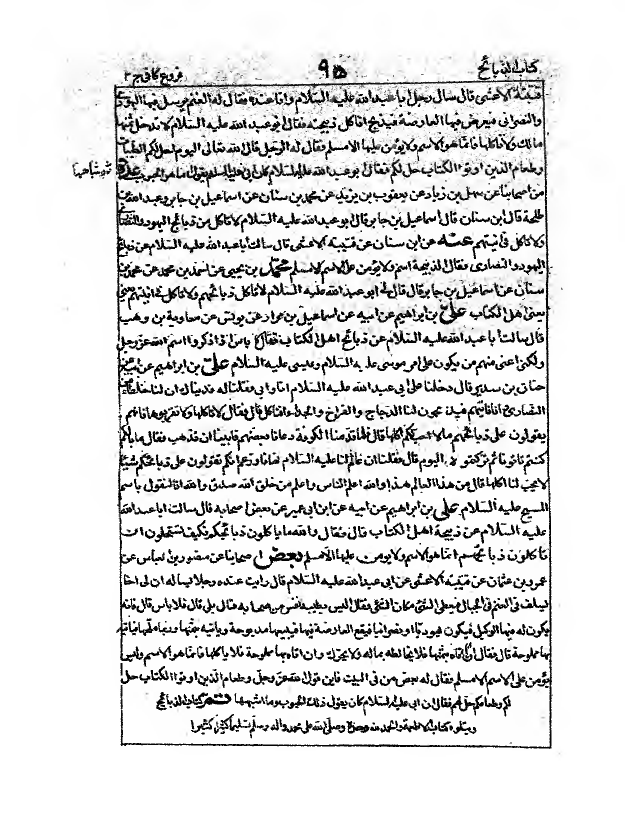 كتاب الذبائح ٩٥ فروع كافي ج ٢
قتيبة الاعشى قال سال رجل ابا عبد الله عليه السلام وانا عنده فقال له الغنم يرسل فيها اليهودي
والنصراني فتعرض فيها العارضة فيذبح اناكل ذبيحته فقال ابو عبد الله عليه السلام لا تدخل ثمنها
مالك ولا تاكلها فانما هو الاسم ولا يؤمن عليها الا مسلم فقال له الرجل قال الله تعالى اليوم احل لكم الطيبات
وطعام الذين اوتوا الكتاب حل لكم فقال ابو عبد الله عليه السلام كان ابي عليه السلام يقول انما هو الحبوب عدة
من اصحابنا عن سهل بن زياد عن يعقوب بن يزيد عن محمد بن سنان عن اسماعيل بن جابر وعبد الله بن
طلحة قال ابن سنان قال اسماعيل بن جابر قال ابو عبد الله عليه السلام لا تاكل من ذبائح اليهود والنصارى
ولا تاكل في انيتهم عنه عن ابن سنان عن قتيبة الاعشى قال سالت ابا عبد الله عليه السلام عن ذبائح
اليهود والنصارى فقال الذبيحة اسم ولا يؤمن على الاسم الا مسلم محمد بن يحيى عن احمد بن محمد عن محمد بن
سنان عن اسماعيل بن جابر قال قال لي ابو عبد الله عليه السلام لا تاكل ذبائحهم ولا تاكل في انيتهم
يعني اهل الكتاب علي بن ابراهيم عن ابيه عن اسماعيل بن مرار عن يونس عن معاوية بن وهب
قال سالت ابا عبد الله عليه السلام عن ذبائح اهل الكتاب فقال لا باس اذا ذكروا اسم الله عز وجل
ولكني اعني منهم من يكون على امر موسى عليه السلام وعيسى عليه السلام علي بن ابراهيم عن ابيه عن
حنان بن سدير قال دخلنا على ابي عبد الله عليه السلام انا وابي فقلنا له فديناك ان لنا خلطاء من
النصارى وانا ناتيهم فيذبحون لنا الدجاج والفراخ والجداء افناكل قال فقال لا تاكلوها ولا تقربوها فانهم
يقولون على ذبائحهم ما لا احب لكم اكلها قال فلما قدمنا الكوفة دعانا بعضهم فابينا ان نذهب فقال ما بالكم
كنتم تاتونا ثم تركتموه اليوم قال فقلنا ان عالما لنا عليه السلام نهانا وزعم انكم تقولون على ذبائحكم شيئا
لا يحب لنا اكلها قال من هذا العالم هذا والله اعلم الناس واعلم من خلق الله صدق والله انا لنقول باسم
المسيح عليه السلام علي بن ابراهيم عن ابيه عن ابن ابي عمير عن بعض اصحابه قال سالت ابا عبد الله
عليه السلام عن ذبيحة اهل الكتاب قال فقال والله ما ياكلون ذبائحكم فكيف تستحلون ان
تاكلون ذبائحهم انما هو الاسم ولا يؤمن عليها الا مسلم بعض اصحابنا عن منصور بن العباس عن
عمرو بن عثمان عن قتيبة الاعشى عن ابي عبد الله عليه السلام قال رايت عنده رجلا يساله ان لي اخا
يسلف في الغنم في الجبال فيعطى السن مكان السن فقال اليس بطيب نفس من صاحبه قال بلى قال فلا باس قال فانه
يكون له فيها الوكيل فيكون يهوديا او نصرانيا فيقع العارضة فيها فيبيعها مذبوحة ويأتيه بثمنها وربما ملحها فياتيه
بها مملوحة قال فقال ان اتاه بثمنها فلا يخالطه بماله ولا يحركه وان اتاه بها مملوحة فلا ياكلها فانما هو الاسم وليس
يؤمن على الاسم الا مسلم فقال له بعض من في البيت فاين قول الله عز وجل وطعام الذين اوتوا الكتاب حل
لكم وطعامكم حل لهم فقال ان ابي عليه السلام كان يقول ذلك الحبوب وما اشبهها تم كتاب الذبائح
ويتلوه كتاب الاطعمة والحمد لله وحده وصلى الله على محمد واله وسلم تسليما كثيرا كثيرا